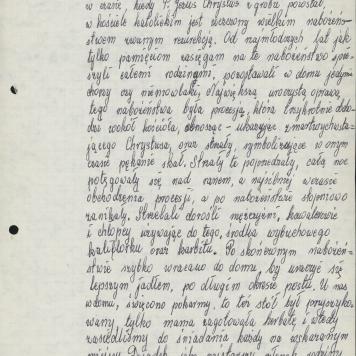 w czasie, kiedy P. Jezus Chrystus z grobu powstał,
w kościele katolickim jest wierzony wielkim nabożeń-
stwem zwanym rezurekcją. Od najmłodszych lat jak
tylko pamięcią sięgam na te nabożeństwo spie-
szyli całymi rodzinami, pozostawali w domu jedynie
chorzy czy niemowlaki. Największą uroczystą oprawą
tego nabożeństwa była procesja, która trzykrotnie
wokół kościoła, obnosząc - ukazując zmartwychwsta-
jącego Chrystusa, oraz strzały, symbolizujące w onym
czasie pękanie skał. Strzały te poprzedzały, całą noc
potęgowały się nad ranem, a najsilniej w czasie
obchodzenia procesji, a po nabożeństwie stopniowo
zanikały. Strzelali dorośli mężczyźni, kawalerowie
i chłopcy używając do tego, środka wybuchowego
kaliflorku oraz karbitu. Po skończonym nabożeń-
stwie szybko wracano do domu, by uraczyć się
lepszym jadłem, po długim okresie postu. U nas
w domu, święcono pokarmy, to też stół był przyszyko-
wany tylko mama zagotowała herbatę i wtedy
zasiedliśmy do śniadania każdy na wskazanym
miejscu. Dziadek jako najstarszy członek rodziny